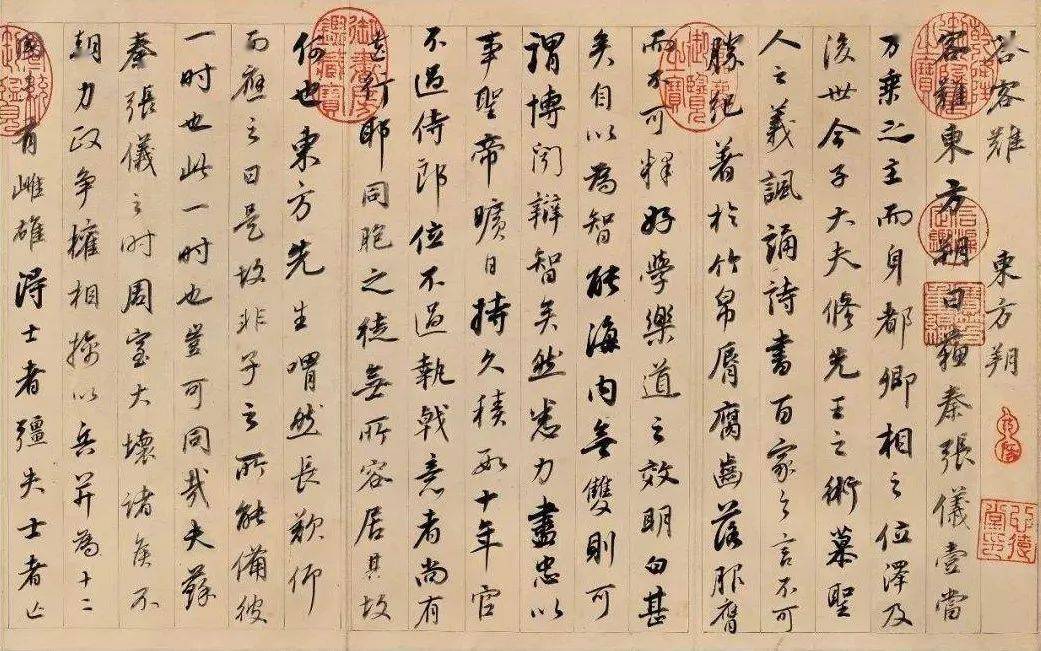 答客難 東方朔
客難東方朔曰蘇秦張儀壹當
万乘之主而身都卿相之位澤及
後世今子大夫修先王之術慕聖
人之義諷誦詩書百家之言不可
勝紀著於竹帛脣腐齒落服膺
而不可釋好學樂道之效明白甚
矣自以為智能海内無雙則可
謂博聞辯智矣然悉力盡忠以
事聖帝曠日持久積數十年官
不過侍郎位不過執戟意者尚有
遺行耶同胞之徒無所容居其故
何也東方先生喟然長歎仰
而應之曰是故非子之所能備彼
一时也此一时也豈可同哉夫蘇
秦張儀之时周室大壞諸侯不
朝力政争權相擒以兵并為十二
國未有雌雄得士者彊失士者亡